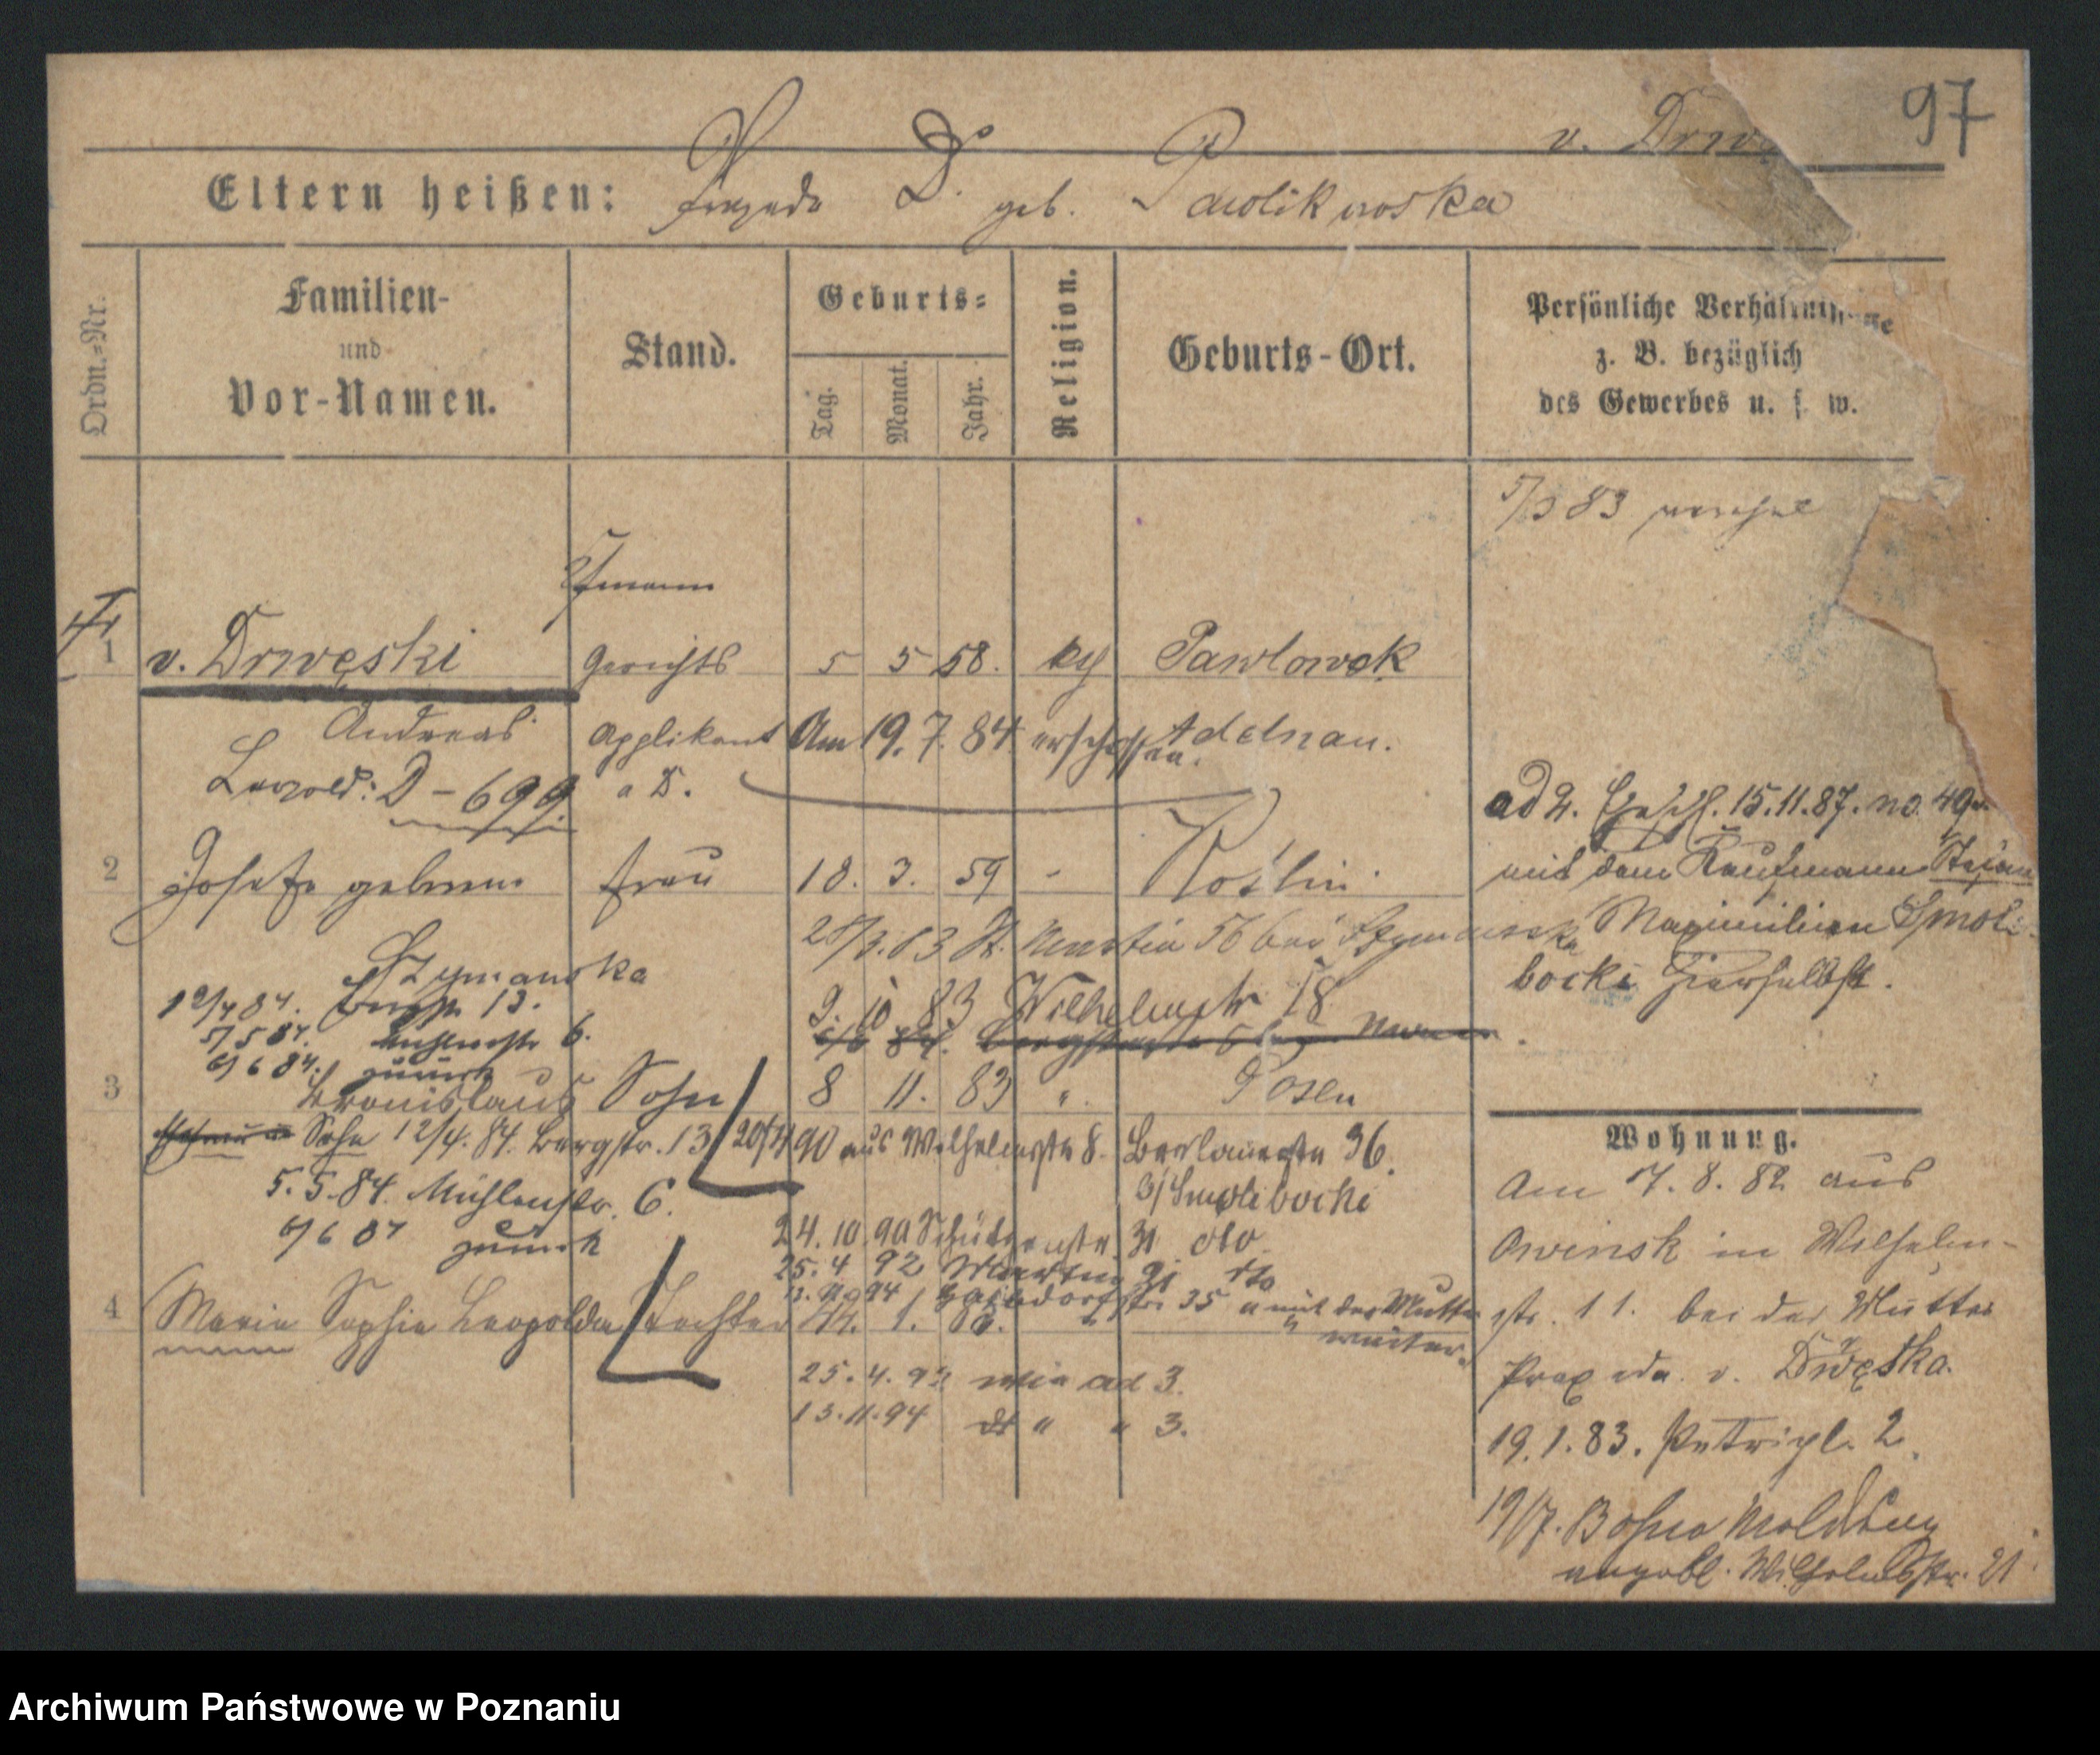 97
v. Drwę
Eltern heißen: D. geb. Pawlikowska
Ordn.=Nr.
Familien-
und
Vor-Namen.
Stand.
Geburts=
Tag.
Monat.
Jahr.
Religion.
Geburts-Ort.
Persönliche Verhältnisse
z. B. bezüglich
des Gewerbes u. s. w.
5/3 83
Ehmann
1 v. Drwęski Gerichts 5 5 58. kth Pawlowek
Andreas Applikant Am 19. 7. 84 erschossen. Adelnau.
Leopold: D - 699 a D.
ad 2. 15.11.87. no. 49
2 Josefa geborne Frau 18. 3. 59 - Koślin
mit dem Kaufmann Stefan
Szymanska
28/3. 83 St. Martin 56 bei Szymanska
Maximilian Smoli-
bocki hierselbst.
12/4 84. Bergstr 13.
9. 10 83 Wilhelmstr 18
5/5 84. Mühlenstr 6.
6/6 84. zurück
3 Bronislaus Sohn 8 11. 83 " Posen
Sohn 12/4. 84. Bergstr. 13
20/4 90 aus Wilhelmstr 8. 36.
5. 5. 84. Mühlenstr. 6.
3/ Smolibocki
6/6 84 zurück
24. 10. 90 Schützenstr 31 dto
25. 4 92 Martin dto
13. 11. 94 str. 35 mit der Mutter
weiter.
4 Maria Sophia Leopolda Tochter 1.
25. 4. 92 wie ad 3.
13. 11. 94 dt " " 3.
Wohnung.
Am 7. 8. 82 aus
Owinsk in Wilhelm-
str. 11. bei der Mutter
Praxeda v. Drwęska.
19. 1. 83. Petripl. 2
19/7.
angebl. Wilhelmstr. 21
Archiwum Państwowe w Poznaniu